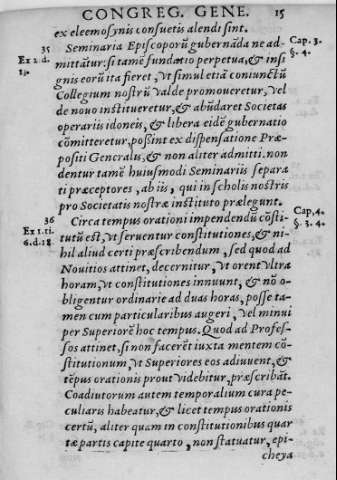 CONGREG. GENE. 15
ex eleemosynis consuetis alendi sint.
35
Ex 1. d.
Seminaria Episcoporũ gubernãda ne ad-
Cap. 3.
§. 4.
mittãtur: si tamẽ fundatio perpetua, & insi
gnis eorũ ita fieret, vt simul etiã coniunctũ
Collegium nostrũ valde promoueretur, vel
de nouo instítueretur, & abũdaret Societas
operariis idoneis, & libera eidẽ gubernatio
cõmitteretur, possint ex dispensatione Præ-
positi Generalis, & non aliter admitti. non
dentur tamẽ huiusmodi Seminariis separa
ti præceptores, ab iis, qui in scholis nostris
pro Societatis nostræ instituto prælegunt.
36
Ex 1. ti.
6. d. 18.
Circa tempus orationi impendendũ cõsti-
Cap. 4.
§. 3. 4.
tutũ est, vt seruentur constitutiones, & ni-
hil aliud certi præscribendum, sed quod ad
Nouitios attinet, decernitur, vt orent vltra
horam, vt constitutiones innuunt, & nõ o-
bligentur ordinarie ad duas horas, posse ta-
men cum particularibus augeri, vel minui
per Superiorẽ hoc tempus. Quod ad Profes-
sos attinet, si non facerẽt iuxta mentem cõ-
stitutionum, vt Superiores eos adiuuent, &
tẽpus orationis prout videbitur, præscribãt.
Coadiutorum autem temporalium cura pe-
culiaris habeatur, & licet tempus orationis
certũ, aliter quam in constitutionibus quar
tæ partis capite quarto, non statuatur, epi-
cheya